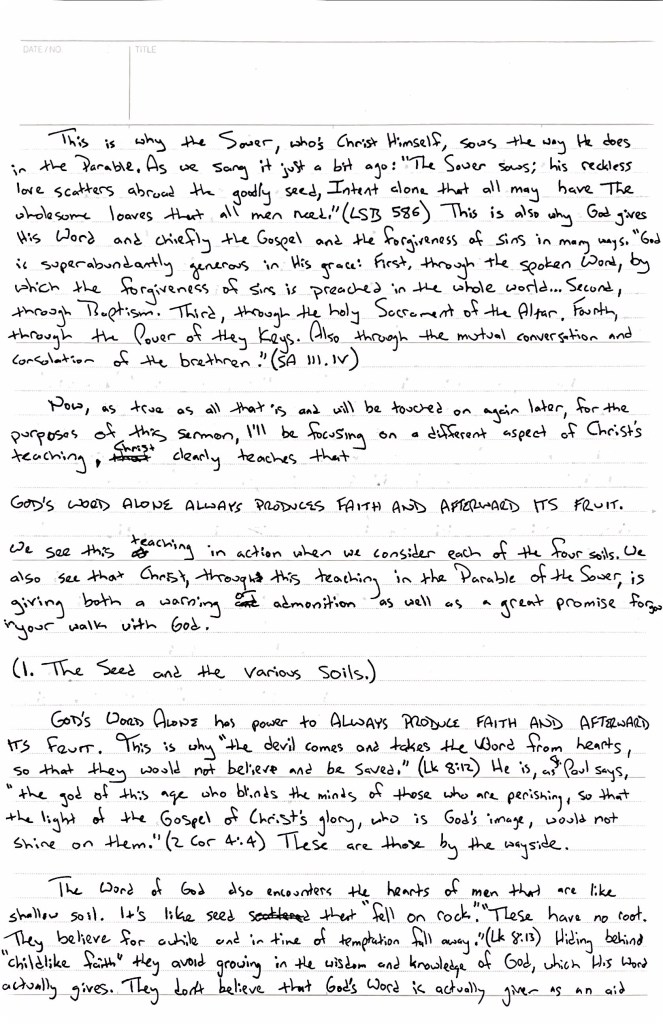 DATE/NO. TITLE
This is why the Sower, who's Christ Himself, sows the way He does
in the Parable. As we sang it just a bit ago: "The Sower sows; his reckless
love scatters abroad the goodly seed, Intent alone that all may have The
wholesome loaves that all men need." (LSB 586) This is also why God gives
His Word and chiefly the Gospel and the forgiveness of sins in many ways. "God
is superabundantly generous in His grace: First, through the spoken Word, by
which the forgiveness of sins is preached in the whole world... Second,
through Baptism. Third, through the holy Sacrament of the Altar. Fourth,
through the Power of they Keys. Also through the mutual conversation and
consolation of the brethren." (SA III.IV)
Now, as true as all that is and will be touched on again later, for the
purposes of this sermon, I'll be focusing on a different aspect of Christ's
teaching, Christ clearly teaches that
GOD'S WORD ALONE ALWAYS PRODUCES FAITH AND AFTERWARD ITS FRUIT.
We see this teaching in action when we consider each of the four soils. We
also see that Christ, through this teaching in the Parable of the Sower, is
giving both a warning or admonition as well as a great promise for you
in your walk with God.
(1. The Seed and the Various Soils.)
GOD'S WORD ALONE has power to ALWAYS PRODUCE FAITH AND AFTERWARD
ITS FRUIT. This is why "the devil comes and takes the Word from hearts,
so that they would not believe and be saved." (Lk 8:12) He is, as St Paul says,
"the god of this age who blinds the minds of those who are perishing, so that
the light of the Gospel of Christ's glory, who is God's image, would not
shine on them." (2 Cor 4:4) These are those by the wayside.
The Word of God also encounters the hearts of men that are like
shallow soil. It's like seed scattered that "fell on rock." "These have no root.
They believe for awhile and in time of temptation fall away." (Lk 8:13) Hiding behind
"childlike faith" they avoid growing in the wisdom and knowledge of God, which His Word
actually gives. They don't believe that God's Word is actually given as an aid